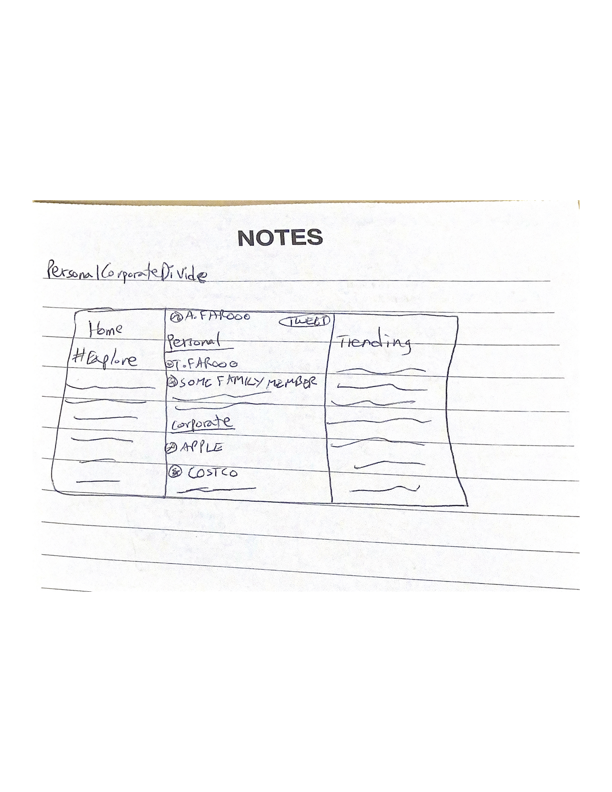 NOTES
PersonalCorporateDivide
Home
#Explore
A. FAROOO
TWEET
Personal
T. FAROOO
SOME FAMILY MEMBER
Corporate
APPLE
COSTCO
Trending